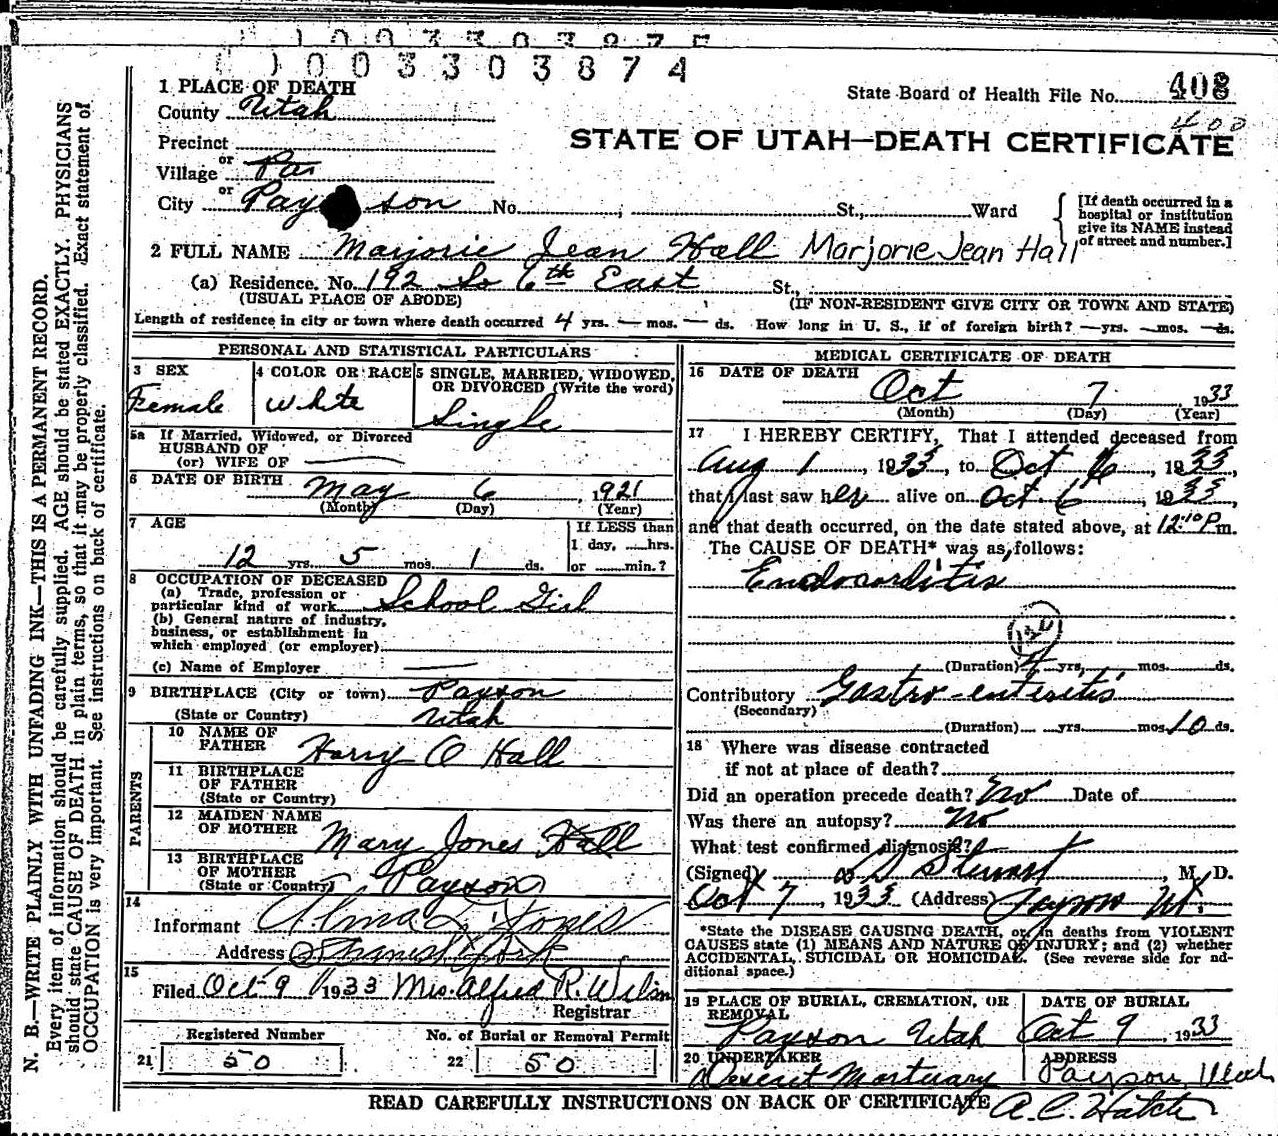 0 1 0 0 3 3 0 3 8 7 4
1 PLACE OF DEATH
County Utah
State Board of Health File No. 408
400
STATE OF UTAH—DEATH CERTIFICATE
Precinct
or
Village Pa
or
City Payson No. , St., Ward
[If death occurred in a hospital or institution give its NAME instead of street and number.]
2 FULL NAME Marjorie Jean Hall Marjorie Jean Hall
(a) Residence. No. 192 So 6th East St.,
(USUAL PLACE OF ABODE) (IF NON-RESIDENT GIVE CITY OR TOWN AND STATE)
Length of residence in city or town where death occurred 4 yrs. — mos. — ds. How long in U. S., if of foreign birth? — yrs. — mos. — ds.
PERSONAL AND STATISTICAL PARTICULARS
3 SEX
Female
4 COLOR OR RACE
White
5 SINGLE, MARRIED, WIDOWED, OR DIVORCED (Write the word)
Single
5a If Married, Widowed, or Divorced
HUSBAND OF
(or) WIFE OF —
6 DATE OF BIRTH May 6, 1921
(Month) (Day) (Year)
7 AGE
12 yrs. 5 mos. 1 ds.
If LESS than
1 day, ....hrs.
or ......min.?
8 OCCUPATION OF DECEASED
(a) Trade, profession or
particular kind of work School Girl
(b) General nature of industry,
business, or establishment in
which employed (or employer)
(c) Name of Employer —
9 BIRTHPLACE (City or town) Payson
(State or Country) Utah
PARENTS
10 NAME OF
FATHER Harry O Hall
11 BIRTHPLACE
OF FATHER
(State or Country)
12 MAIDEN NAME
OF MOTHER Mary Jones Hall
13 BIRTHPLACE
OF MOTHER
(State or Country) Payson
14
Informant Alma L Jones
Address Spanish Fork
15
Filed Oct 9 1933 Mrs. Alfred R. Wilson
Registrar
Registered Number No. of Burial or Removal Permit
21 50 22 50
MEDICAL CERTIFICATE OF DEATH
16 DATE OF DEATH
Oct 7, 1933
(Month) (Day) (Year)
17 I HEREBY CERTIFY, That I attended deceased from
Aug 1, 1933, to Oct 6, 1933,
that I last saw her alive on Oct 6, 1933
and that death occurred, on the date stated above, at 12:10 P m.
The CAUSE OF DEATH* was as follows:
Endocarditis
(Duration) 4 yrs. mos. ds.
Contributory Gastro-enteritis
(Secondary)
(Duration) yrs. mos. 10 ds.
18 Where was disease contracted
if not at place of death?
Did an operation precede death? No Date of
Was there an autopsy? No
What test confirmed diagnosis?
(Signed) Stewart, M. D.
Oct 7, 1933 (Address) Payson Ut.
*State the DISEASE CAUSING DEATH, or in deaths from VIOLENT
CAUSES state (1) MEANS AND NATURE OF INJURY; and (2) whether
ACCIDENTAL, SUICIDAL OR HOMICIDAL. (See reverse side for ad-
ditional space.)
19 PLACE OF BURIAL, CREMATION, OR
REMOVAL
Payson Utah
DATE OF BURIAL
Oct 9, 1933
20 UNDERTAKER
Deseret Mortuary
ADDRESS
Payson, Utah
READ CAREFULLY INSTRUCTIONS ON BACK OF CERTIFICATE A. C. Hatch
N. B.—WRITE PLAINLY WITH UNFADING INK—THIS IS A PERMANENT RECORD.
Every item of information should be carefully supplied. AGE should be stated EXACTLY. PHYSICIANS
should state CAUSE OF DEATH in plain terms, so that it may be properly classified. Exact statement of
OCCUPATION is very important. See instructions on back of certificate.